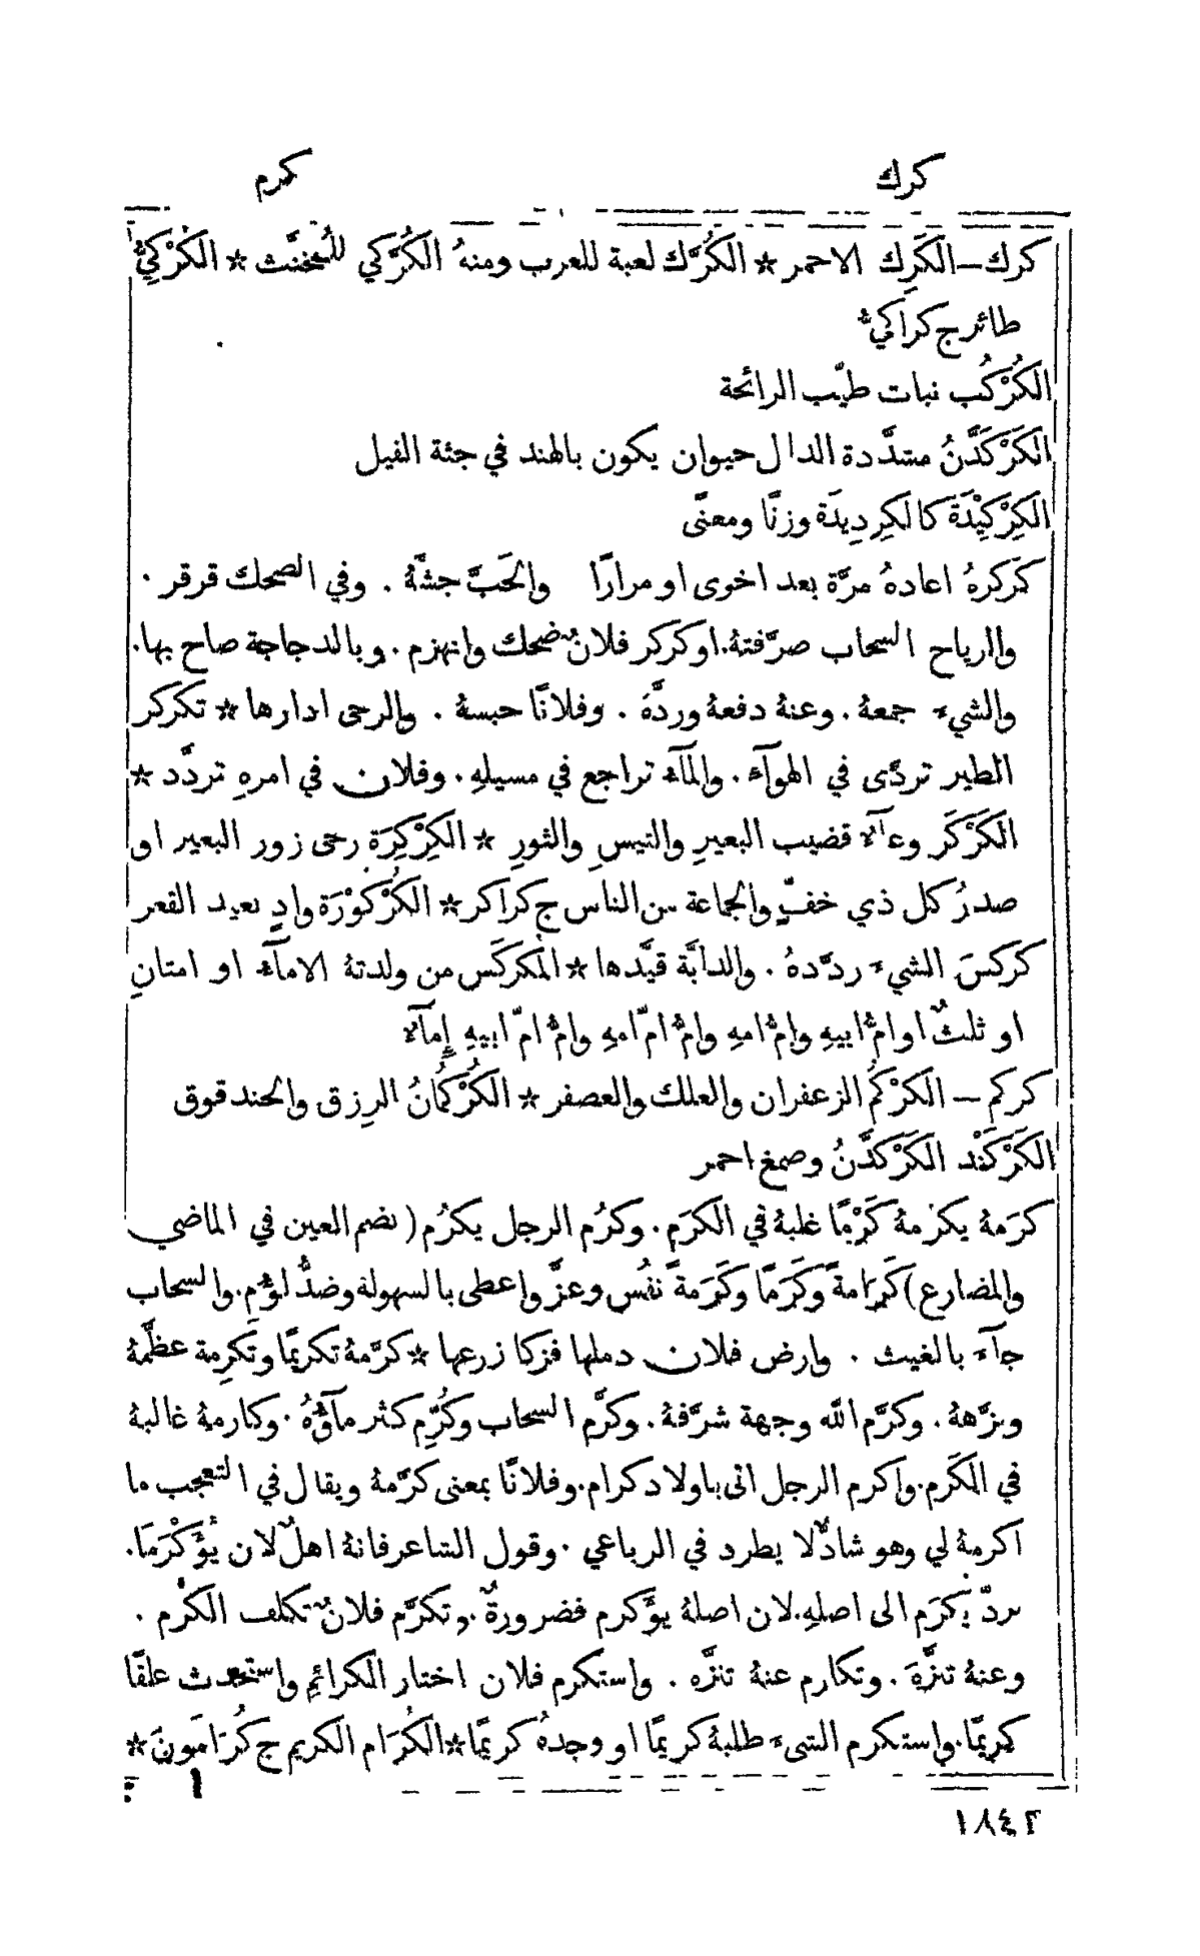 كرك
كرم
كرك–الكَرِك الاحمر * الكُرَّك لعبة للعرب ومنهُ الكُرَّكي للمخنَّث * الكُرْكِيُّ
طائر ج كَرَاكيُّ
الكُرْكُب نبات طيّب الرائحة
الكَرْكَدَّنُ مشدَّدة الدال حيوان يكون بالهند في جثة الفيل
الكِرْكِيْدَة كالكِردِيدَة وزنًا ومعنًى
كركرهُ اعادهُ مرَّة بعد اخرى او مرارًا والحَبَّ جشَّهُ . وفي الضحك قرقر .
والرياح السحاب صرَّفتهُ. اوكركر فلانٌ ضحك وانهزم . وبالدجاجة صاح بها.
والشيءَ جمعهُ . وعنهُ دفعهُ وردَّهُ . وفلانًا حبسهُ . والرحى ادارها * تكركر
الطير تردَّى في الهوآءِ . والمآءُ تراجع في مسيلهِ . وفلان في امرهِ تردَّد *
الكَرْكَر وعآءُ قضيب البعيرِ والتيسِ والثورِ * الكِرْكِرَة رحى زور البعير او
صدرُ كل ذي خفٍّ والجماعة من الناس ج كراكر * الكُرْكُوْرَة وادٍ بعيد القعر
كَركسَ الشيءَ ردَّدهُ . والدابَّة قيَّدها * المُكركَس من ولدتهُ الامآءُ او امتانِ
او ثلثٌ او امُّ ابيهِ وامُّ امهِ وامُّ امّ امهِ وامُّ امّ ابيهِ إِمآءٌ
كركم – الكُرْكُمُ الزعفران والعلك والعصفر * الكُرْكُمَانُ الرِزق والحندقوق
الكَرْكَنْد الكَرْكَدَّنُ وصمغ احمر
كرَمهُ يكرُمهُ كَرْمًا غلبهُ في الكرَم . وكرُم الرجل يكرُم (بضم العين في الماضي
والمضارع) كَرَامةً وكَرَمًا وكَرَمةً نفُس وعزَّ واعطى بالسهولة وضدُّ لؤُم. والسحاب
جآءَ بالغيث . وارض فلان دملها فزكا زرعها * كرَّمهُ تكريمًا وتكرِمة عظَّمهُ
ونزَّههُ . وكرَّم الله وجههُ شرَّفهُ . وكرَّم السحاب وكُرِّم كثر مآؤُهُ . وكارمهُ غالبهُ
في الكَرَم. واكرم الرجل اتى باولاد كرام. وفلانًا بمعنى كرَّمهُ ويقال في التعجب ما
اكرمهُ لي وهو شاذٌّ لا يطرد في الرباعي . وقول الشاعر فانهُ اهلٌ لان يُؤَكْرَمَا.
بردّ يكرَم الى اصلهِ. لان اصلهُ يؤَكرم فضرورةٌ . وتكرَّم فلانٌ تكلف الكرَم .
وعنهُ تنزَّهَ . وتكارم عنهُ تنزَّه . واستكرم فلان اختار الكرائِم واستحدث علقًا
كريمًا. واستكرم الشيءَ طلبهُ كريمًا او وجدهُ كريمًا * الكُرَام الكريم ج كُرَامَونَ *
١٨٤٢